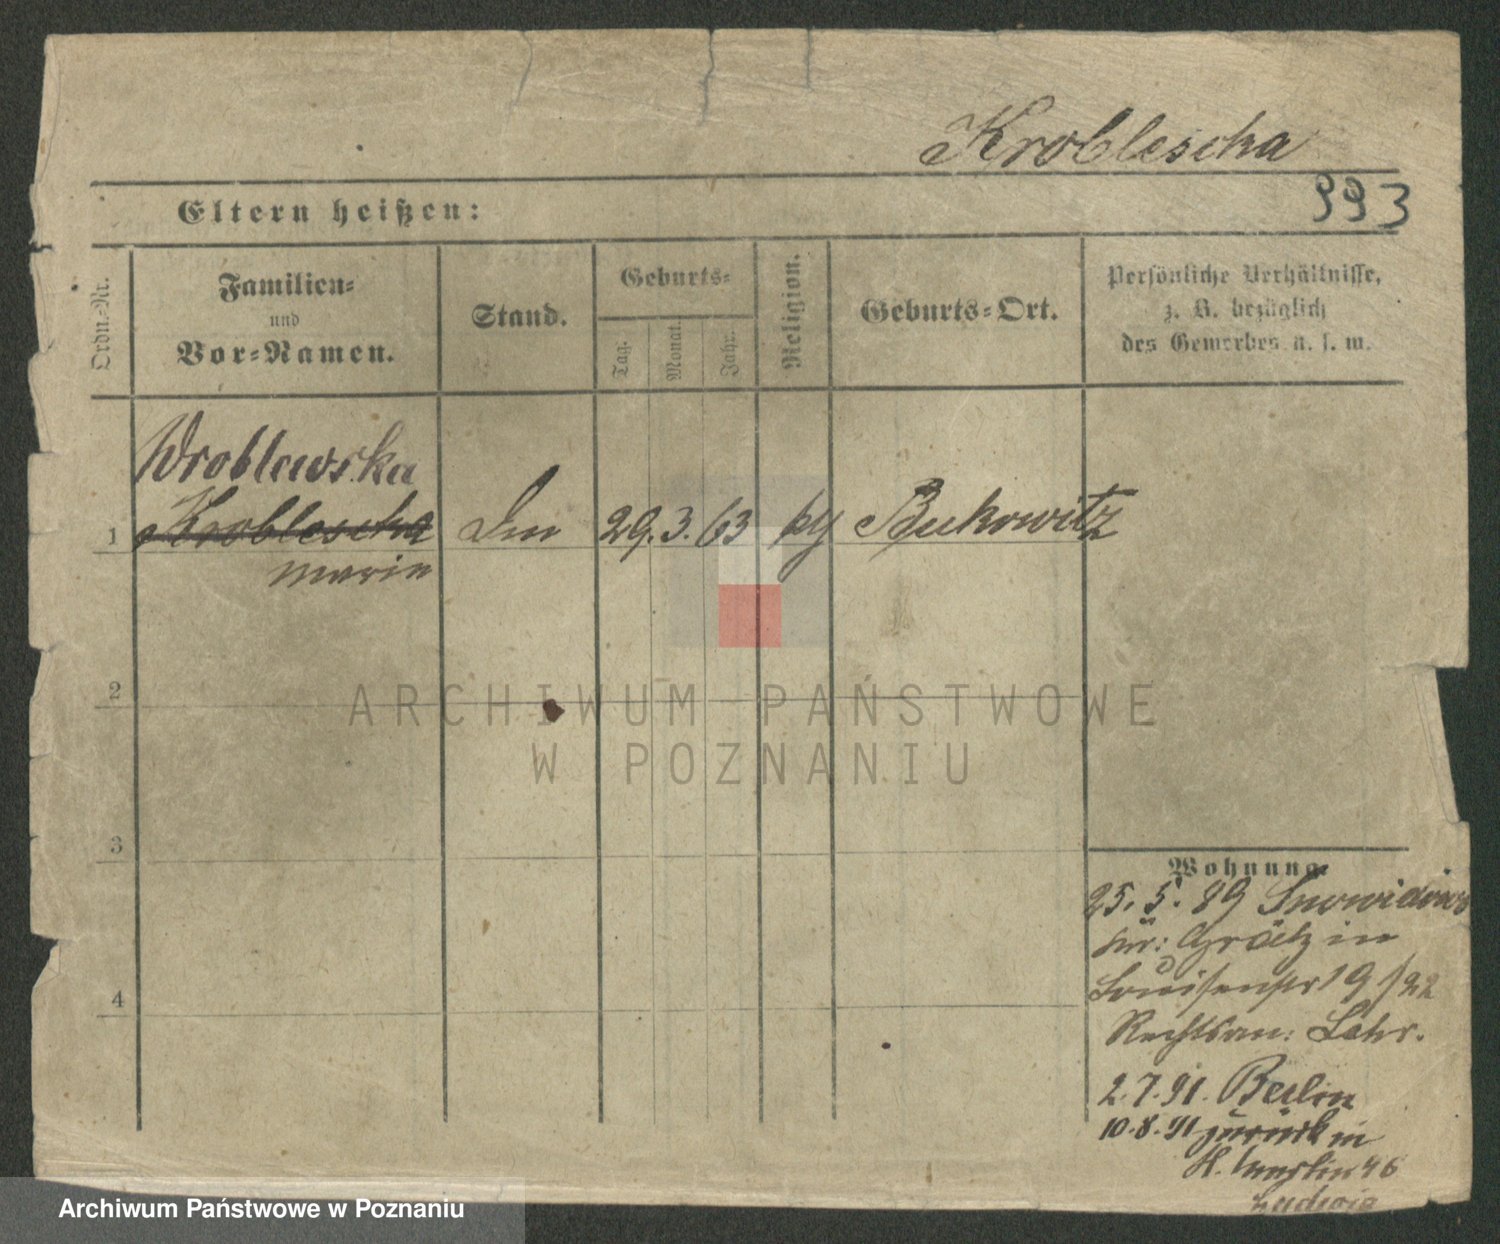 Kroblescha
993
Eltern heißen:
Ordn.-Nr.
Familien-
und
Vor-Namen.
Stand.
Geburts-
Tag.
Monat.
Jahr.
Religion.
Geburts-Ort.
Persönliche Verhältnisse,
z. B. bezüglich
des Gewerbes u. s. w.
Wroblewska
1 Kroblescha 29. 3. 63 Bukowitz
Marie
2
3
4
ARCHIWUM PAŃSTWOWE
W POZNANIU
Wohnung.
25. 5. 89
Grätz in
Louisenstr 19/22
Rechtsan: Lehr.
2. 7. 91. Berlin
10. 8. 91 zurück in
Martin 46
Ludwig
Archiwum Państwowe w Poznaniu